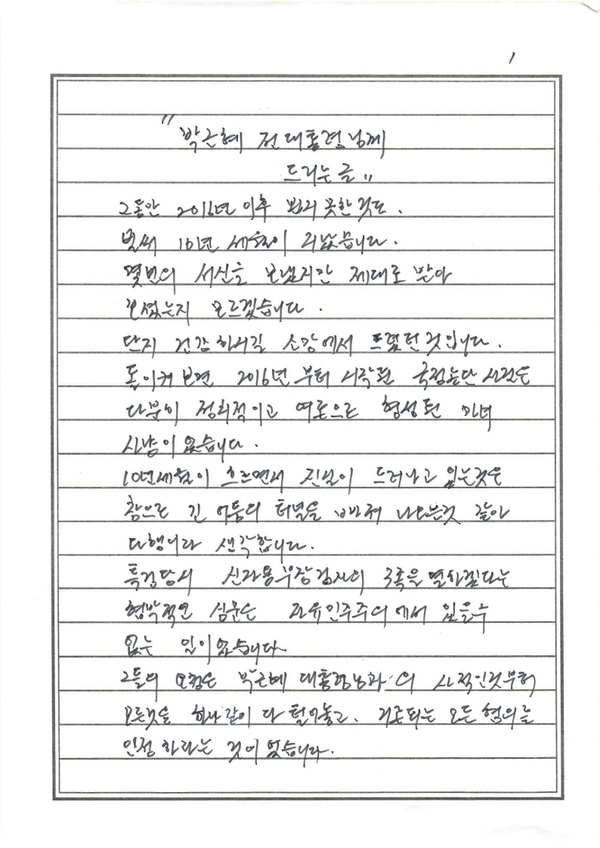 1
"박근혜 전 대통령님께
드리는 글"
그동안 2016년 이후 뵙지 못한 것도
벌써 10년 세월이 지났습니다.
몇번의 서신을 보냈지만 제대로 받아
보셨는지 모르겠습니다.
단지 건강하시길 소망에서 드렸던 것입니다.
돌이켜 보면 2016년부터 시작된 국정농단 사건은
다분히 정치적이고 여론으로 형성된 마녀
사냥이었습니다.
10년세월이 흐르면서 진실이 드러나고 있는것은
참으로 긴 어둠의 터널을 빠져 나오는것 같아
다행이라 생각합니다.
특검당시 신자용부장검사의 3족을 멸하겠다는
협박적인 심문은 자유민주주의에서 있을수
없는 일이었습니다.
그들의 요점은 박근혜 대통령님과의 사적인것부터
모든것을 하나같이 다 털어놓고, 거론되는 모든 혐의를
인정하라는 것이었습니다.